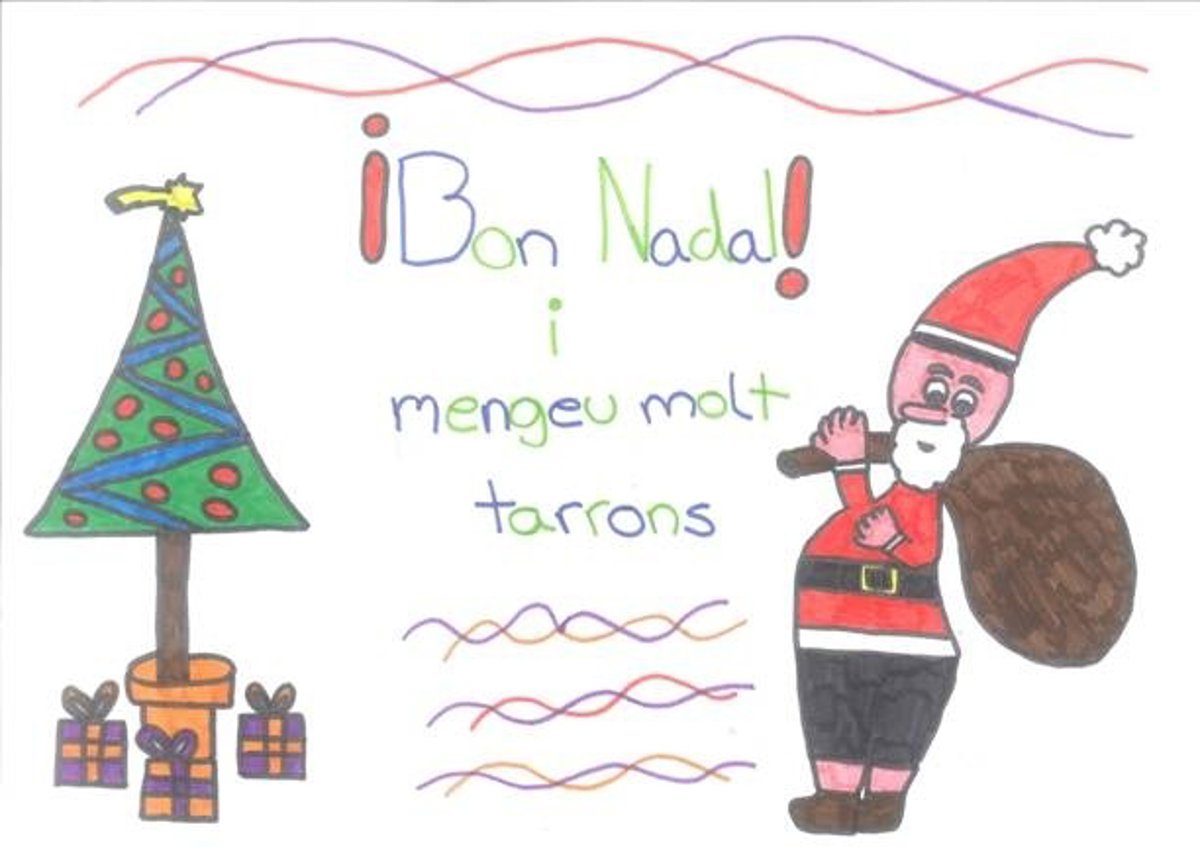 ¡Bon Nadal!
i
mengeu molt
tarrons